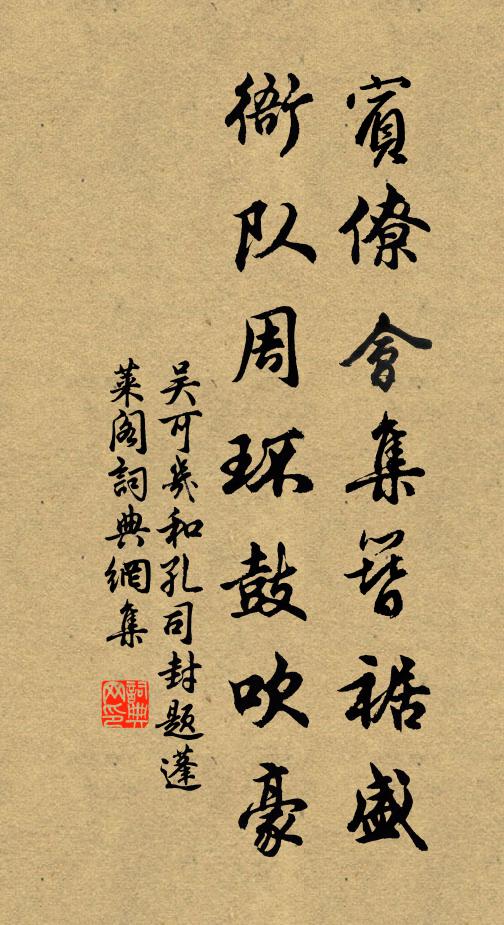 賓僚會集簪裾盛
衙队周环鼓吹豪
吴可幾和孔司封题蓬
莱阁詞典網集
詞典
网印